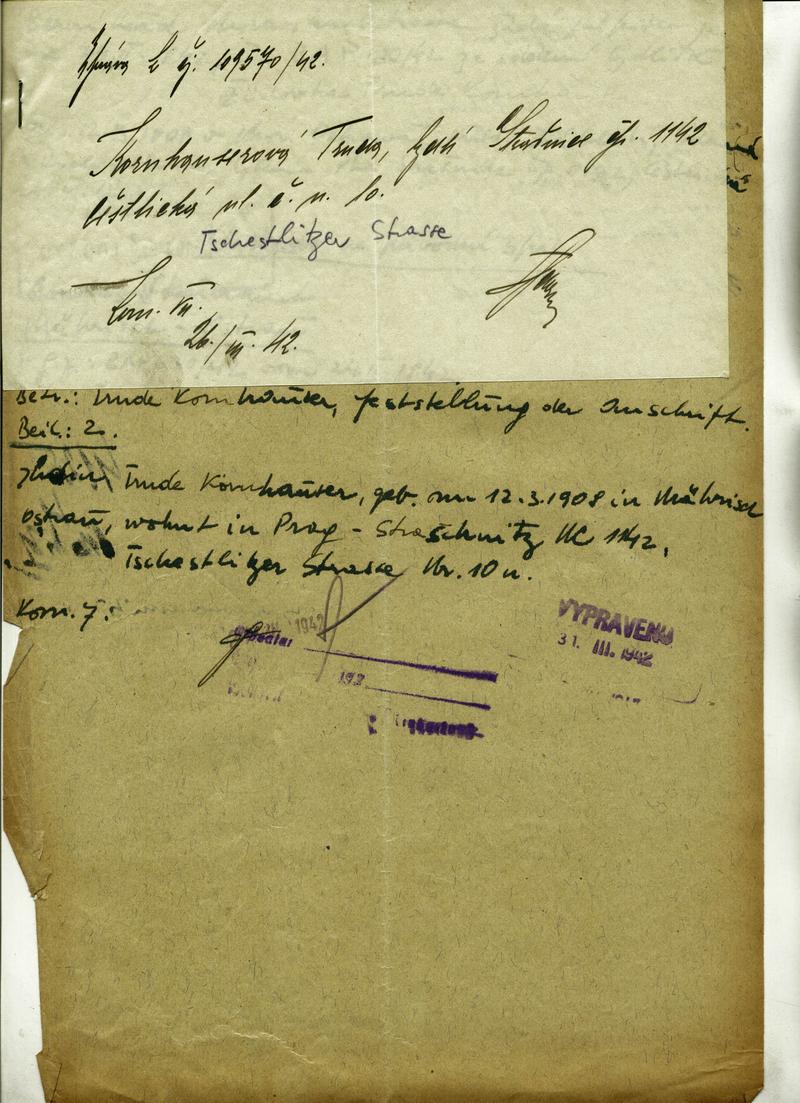 Zpráva k čj. 109570/42.
Kornhauserová Truda, bydlí Strašnice čp. 1142
Čestlická ul. č. n. 10.
Tschestlitzer Strasse
Kom. VII.
26/III. 42.
Betr.: Trude Kornhauser, Feststellung der Anschrift.
Beil.: 2.
Jüdin Trude Kornhauser, geb. am 12.3.1908 in Mährisch
Ostrau, wohnt in Prag - Straschnitz NC 1142,
Tschestlitzer Strasse Nr. 10 n.
Kom. 7:
1942
VYPRAVENO
31. III. 1942
194